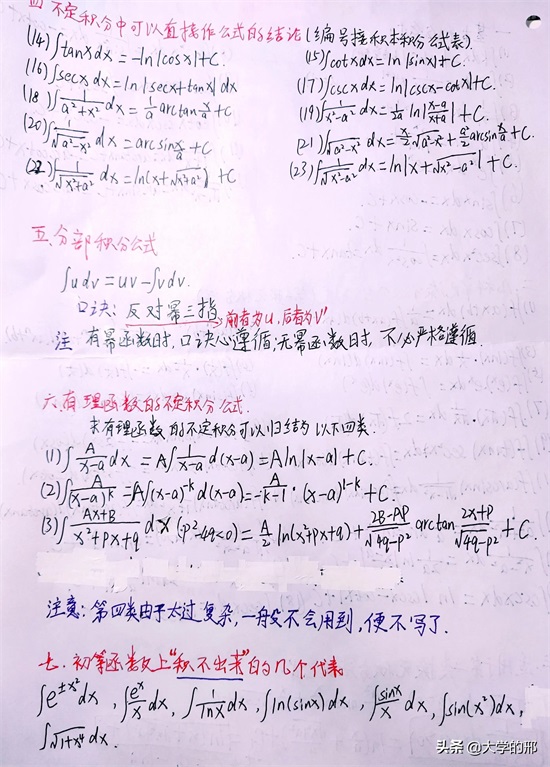 四 不定积分中可以直接作公式的结论(编号接积本积分公式表)
(14)∫tanxdx=-ln|cosx|+C. (15)∫cotxdx=ln|sinx|+C.
(16)∫secxdx=ln|secx+tanx|dx (17)∫cscxdx=ln|cscx-cotx|+C.
(18)∫1/(a²+x²)dx=1/a arctan x/a+C (19)∫1/(x²-a²)dx=1/2a ln|(x-a)/(x+a)|+C.
(20)∫1/√(a²-x²)dx=arcsin x/a+C (21)∫1/√(a²-x²)dx=x/2√(a²-x²)+a²/2 arcsin x/a+C.
(22)∫1/√(x²+a²)dx=ln(x+√(x²+a²))+C (23)∫1/√(x²-a²)dx=ln|x+√(x²-a²)|+C.
五.分部积分公式
∫udv=uv-∫vdv.
口诀: 反对幂三指, 前者为u,后者为V'
注 有幂函数时,口诀必遵循;无幂函数时,不必严格遵循.
六.有理函数的不定积分公式.
求有理函数的不定积分可以归结为以下四类.
(1)∫A/(x-a)dx=A∫1/(x-a)d(x-a)=Aln|x-a|+C.
(2)∫A/(x-a)^k=A∫(x-a)^-k d(x-a)=A/(-k-1)·(x-a)^(1-k)+C.
(3)∫(Ax+B)/(x²+px+q)dx(p²-4q<0)=A/2 ln(x²+px+q)+(2B-AP)/√(4q-p²) arctan (2x+p)/√(4q-p²)+C.
注意:第四类由于太过复杂,一般没不会用到,便不写了.
七.初等函数上"积不出来"的几个代表
∫e^(±x²)dx,∫e^x/x dx,∫1/lnx dx,∫ln(sinx)dx,∫sinx/x dx,∫sin(x²)dx,
∫√(1+x⁴)dx.
头条 @大学的邢